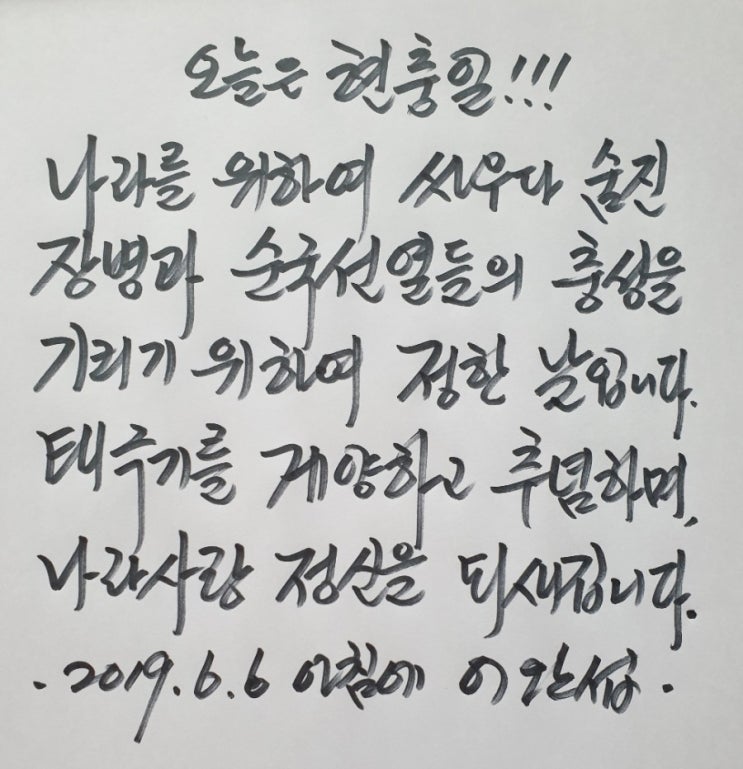 오늘은 현충일!!!
나라를 위하여 싸우다 숨진
장병과 순국선열들의 충성을
기리기 위하여 정한 날입니다.
태극기를 게양하고 추념하며,
나라사랑 정신을 되새깁니다.
. 2019.6.6 아침에 이완섭.